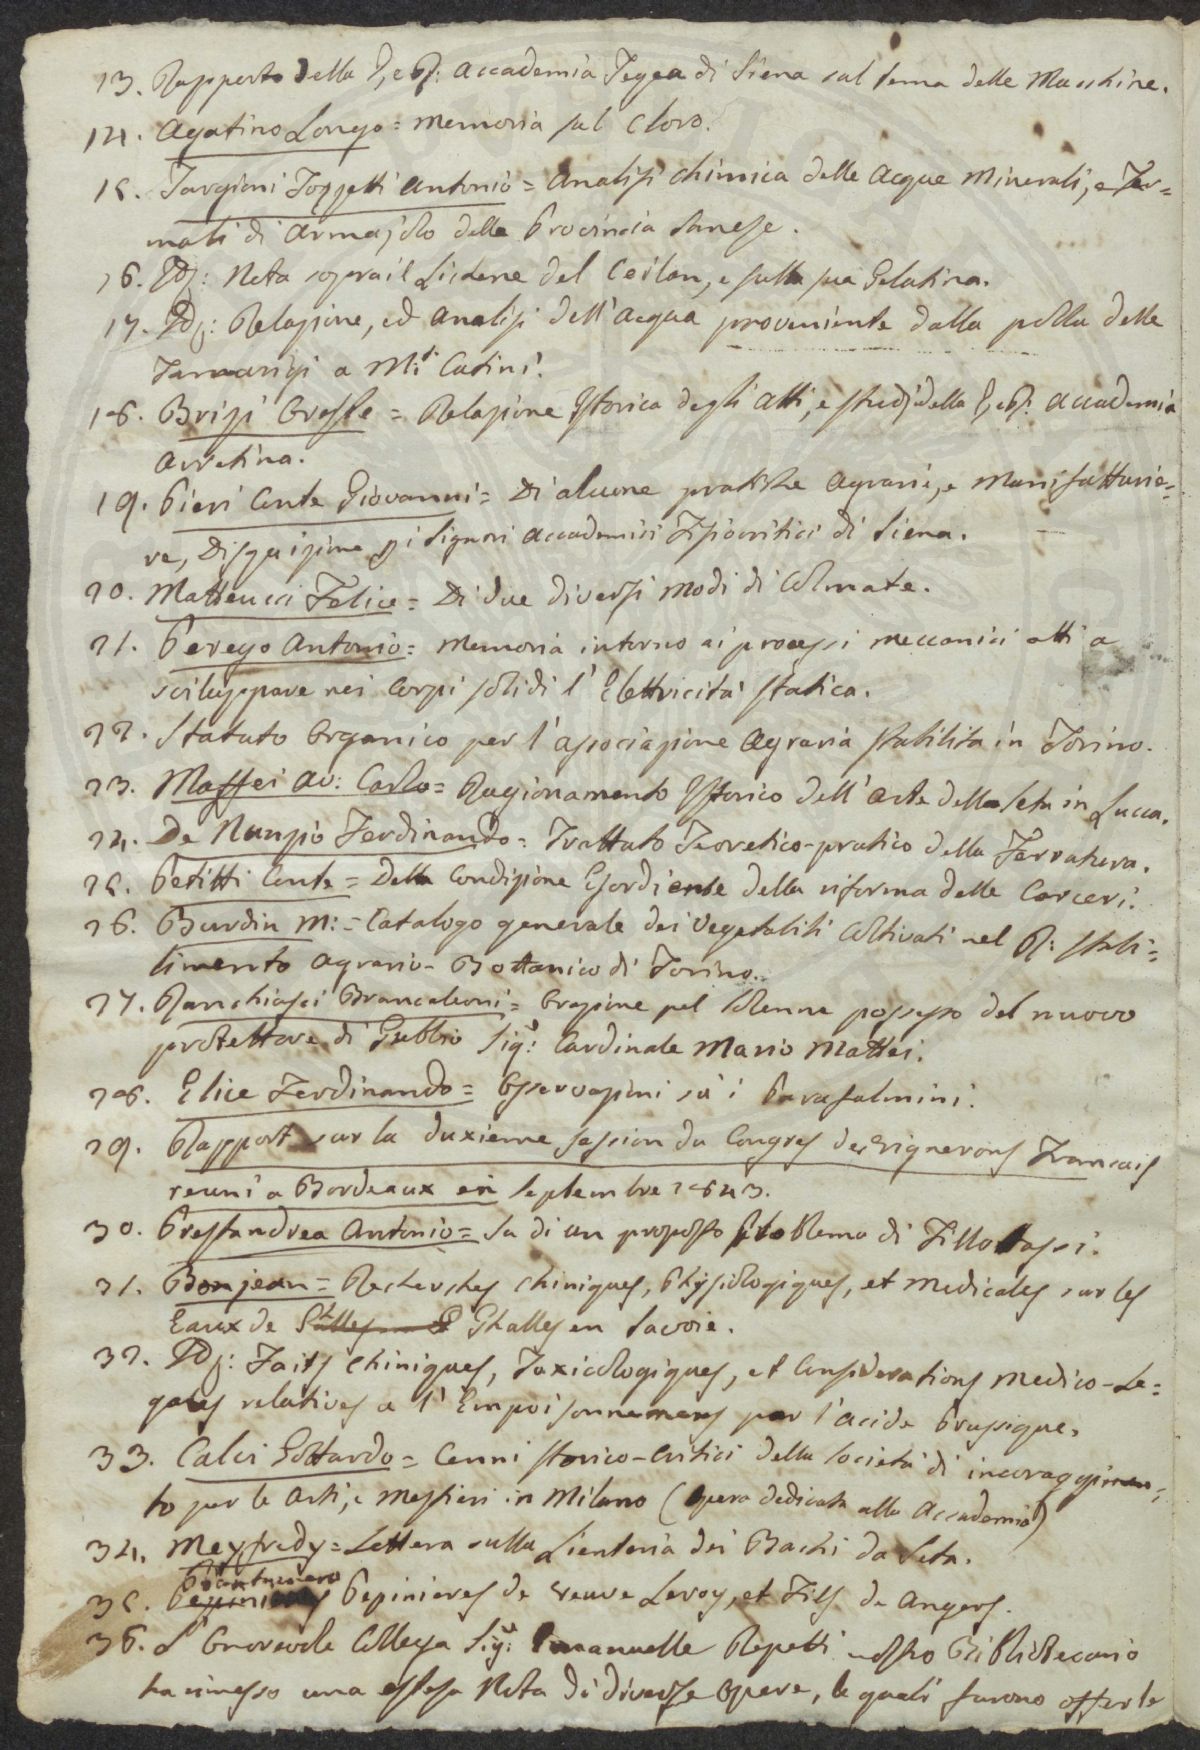 13. Rapporto della I, e R: Accademia Tegea di Siena sul tema delle Macchine.
14. Agatino Longo = Memoria sul Cloro.
15. Targioni Tozzetti Antonio = Analisi chimica delle Acque Minerali, e Ter=
mali di Armajolo della Provincia Sanese.
16. Id: Nota sopra il Lichene del Ceilan, e sulla sua Gelatina.
17. Id: Relazione, ed Analisi dell'Acqua proveniente dalla polla delle
Tamarigi a M:ti Catini.
18. Brizi Oreste = Relazione Istorica degli Atti, e studj della I, e R: Accademia
Aretina.
19. Pieri Conte Giovanni = Di alcune pratiche Agrarie, e Manifatturie=
re, Disquisizione pi Signori Accademici Fisiocritici di Siena.
20. Matteucci Felice = Di due diversi modi di Colmate.
21. Perego Antonio = Memoria intorno ai processi meccanici atti a
sviluppare nei Corpi solidi l'Elettricità statica.
22. Statuto Organico per l'Associazione Agraria stabilita in Torino.
23. Maffei Av: Carlo = Ragionamento Istorico dell'Arte della Seta in Lucca.
24. De Nunzio Ferdinando = Trattato Teoretico-pratico della Ferratura.
25. Petitti Conte = Della Condizione Esordiente della riforma delle Carceri.
26. Burdin M: = Catalogo generale dei Vegetabili Coltivati nel R: Stabi=
limento Agrario-Bottanico di Torino.
27. Ranchiasci Brancaleoni = Orazione pel solenne possesso del nuovo
protettore di Gubbio Sig:r Cardinale Mario Mattei.
28. Elice Ferdinando = Osservazioni su' i Parafulmini.
29. Rapport sur la duxieme session du Congres des Vignerons Francais
reuni a Bordeaux en Septembre 1843.
30. Prestandrea Antonio = Su di un proposto problema di Fillotassi.
31. Bonjean = Recherches chiniques, Physiologiques, et Medicales sur les
Eaux de Challes en Savoie.
32. Id: Faits Chiniques, Toxicologiques, et Considerations Medico-Le=
gales relatives a l'Empoisonnemens par l'acide Prussique.
33. Calvi Gottardo = Cenni storico-critici della Società di incoraggiamen=
to per le Arti, e Mestieri in Milano (Opera dedicata alla Accademia)
34. Meyfredy = Lettera sulla Lienteria dei Bachi da Seta.
35. Pepinieres de Veuve Leroy, et Fils de Angers.
36. L'Onorevole Collega Sig:r Emanuelle Repetti nostro Bibliotecario
ha rimesso una estesa Nota di diverse opere, le quali furono offerte